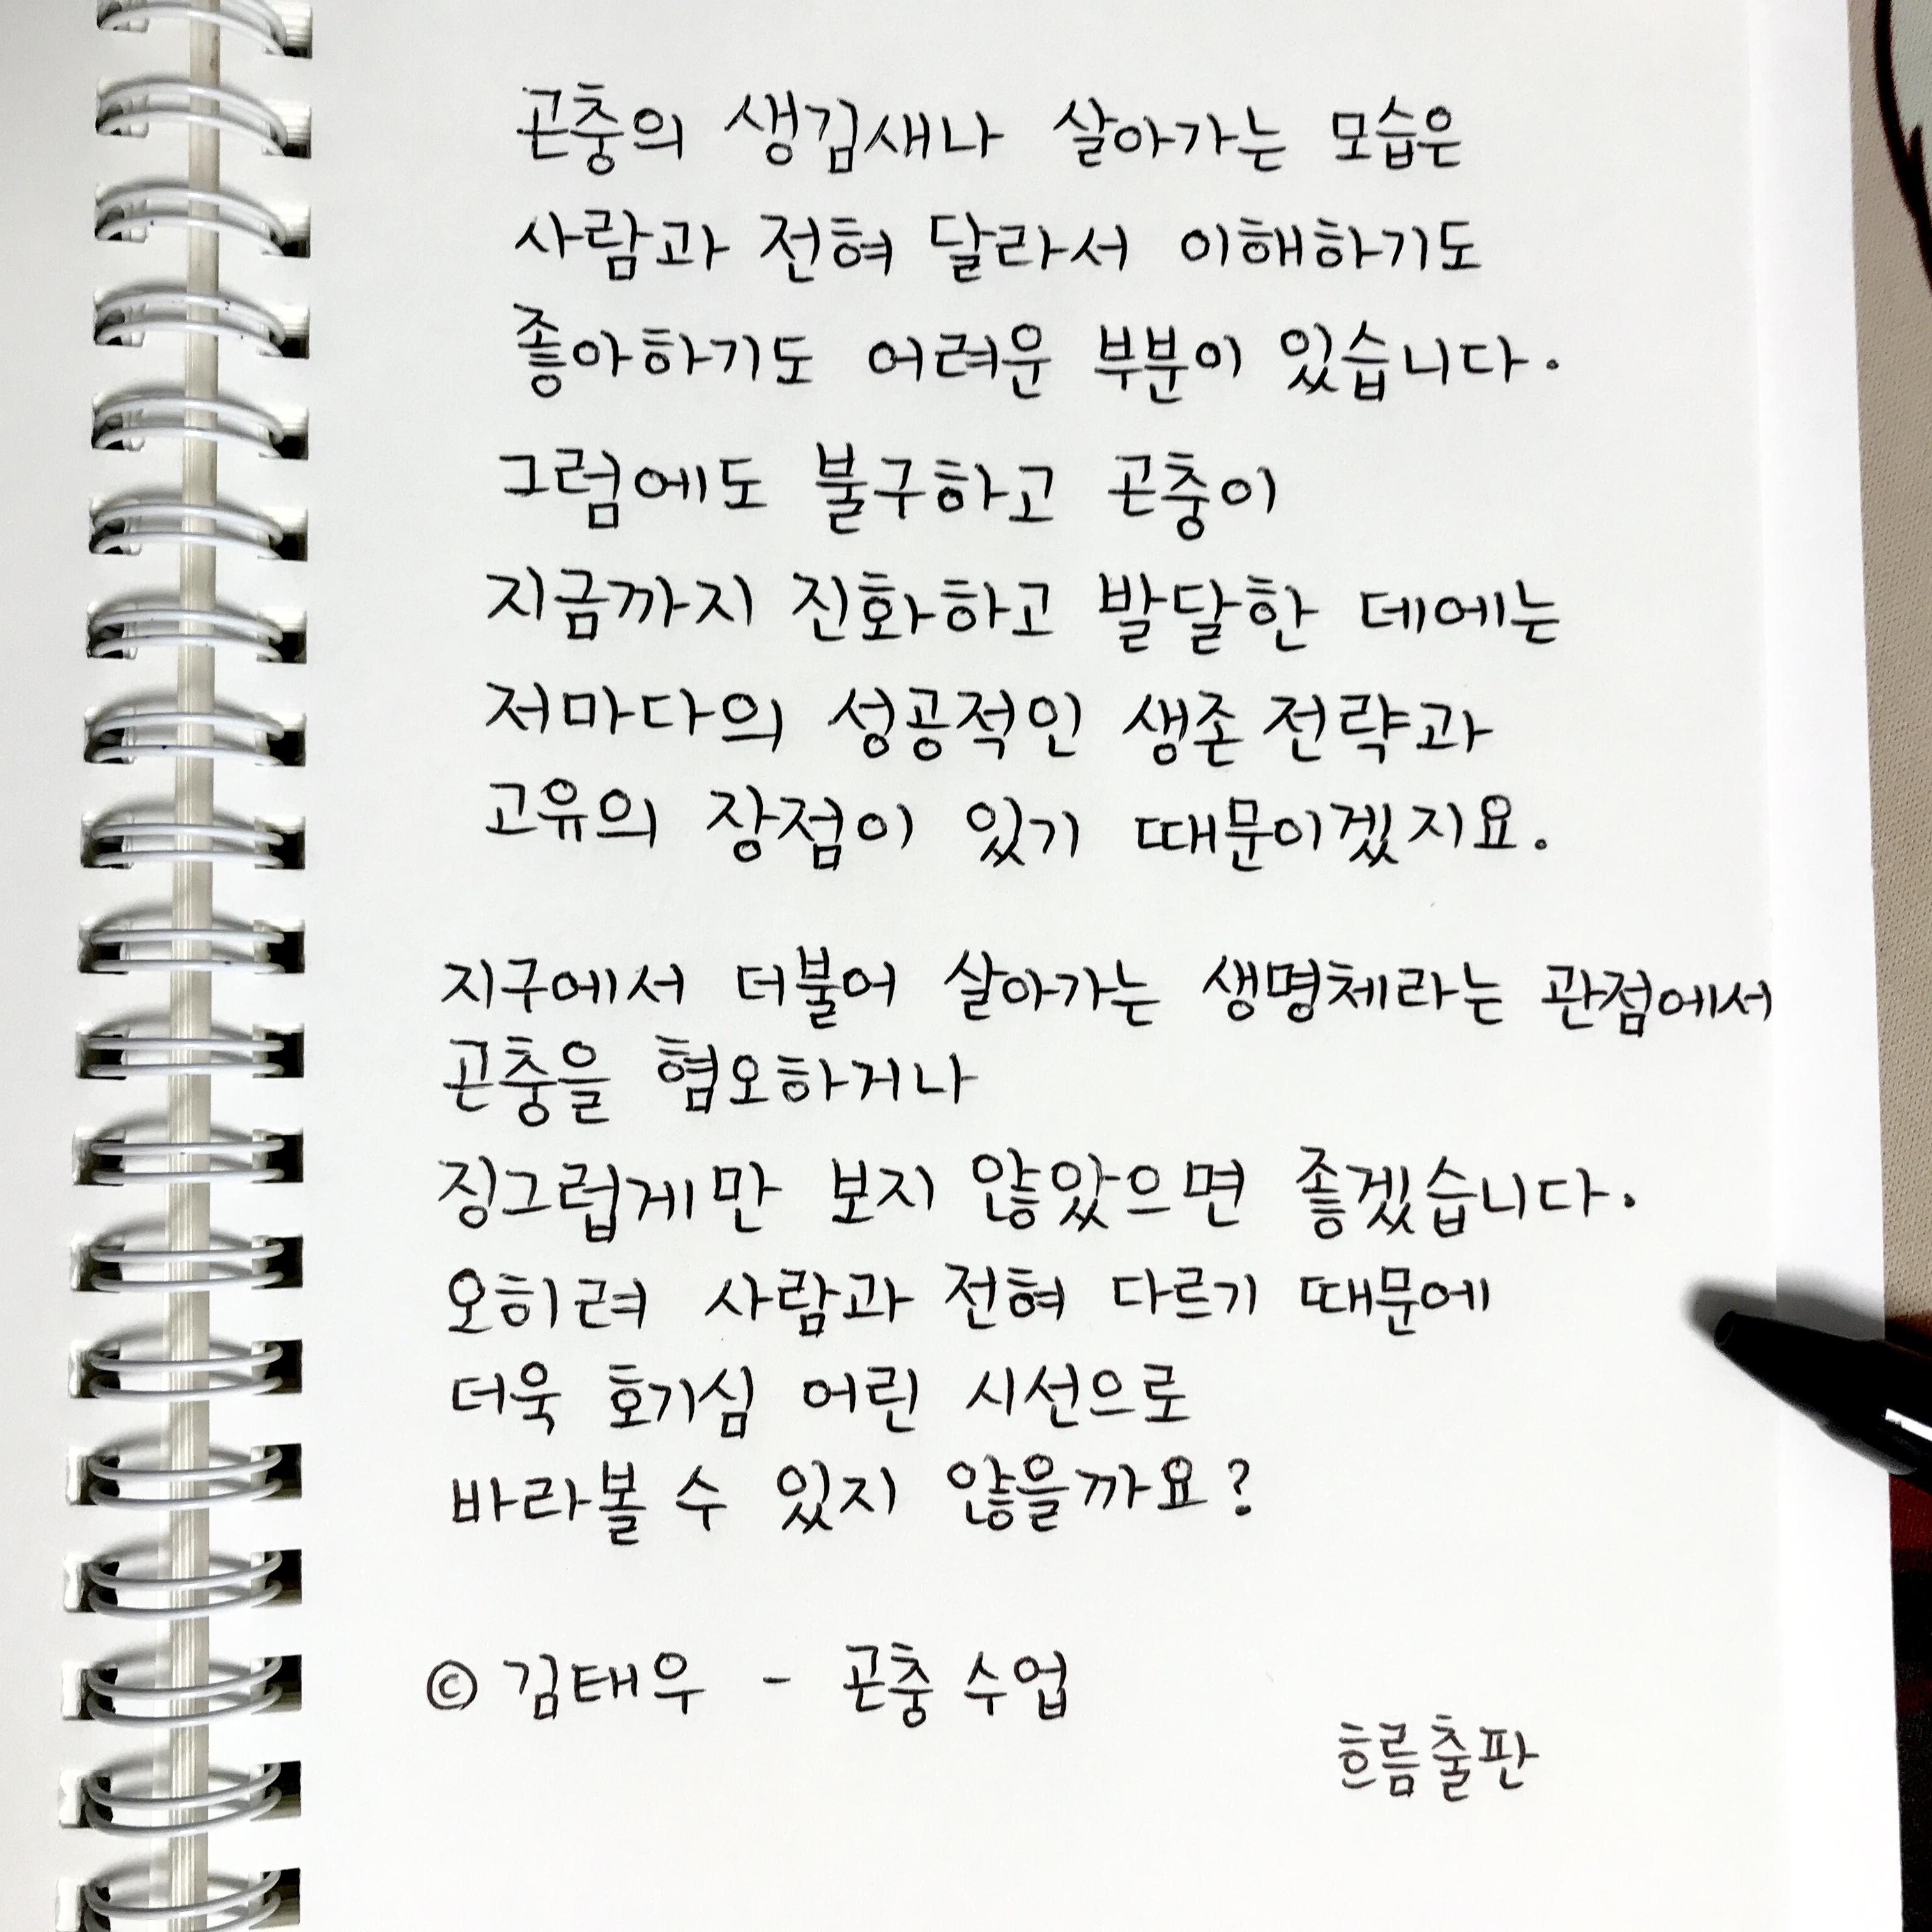 곤충의 생김새나 살아가는 모습은
사람과 전혀 달라서 이해하기도
좋아하기도 어려운 부분이 있습니다.
그럼에도 불구하고 곤충이
지금까지 진화하고 발달한 데에는
저마다의 성공적인 생존 전략과
고유의 장점이 있기 때문이겠지요.
지구에서 더불어 살아가는 생명체라는 관점에서
곤충을 혐오하거나
징그럽게만 보지 않았으면 좋겠습니다.
오히려 사람과 전혀 다르기 때문에
더욱 호기심 어린 시선으로
바라볼 수 있지 않을까요?
© 김태우 - 곤충 수업
흐름출판